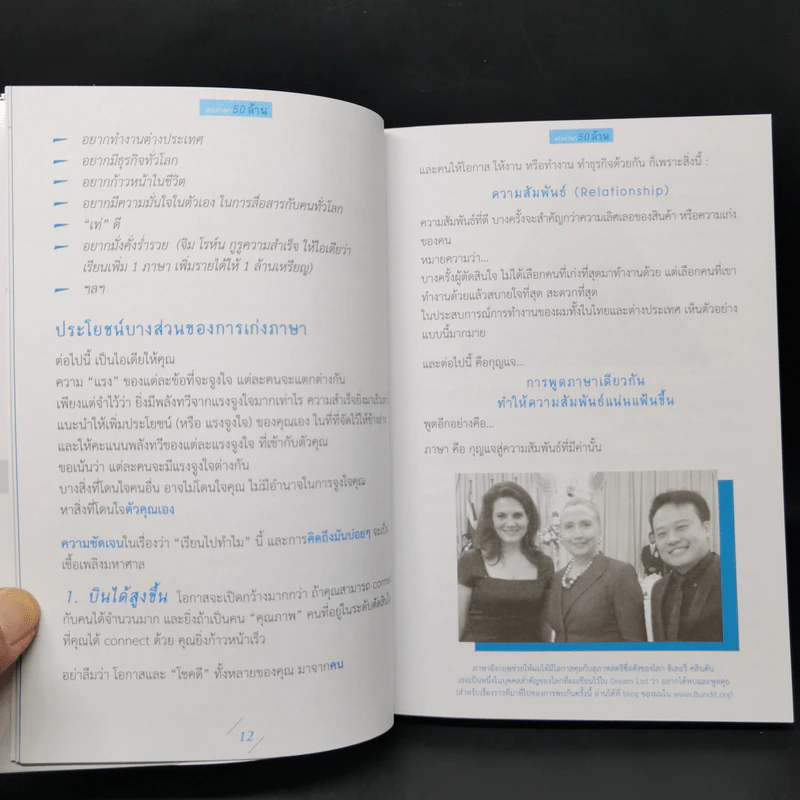 50 ล้าน
อยากทำงานต่างประเทศ
อยากมีธุรกิจทั่วโลก
อยากก้าวหน้าในชีวิต
อยากมีความมั่นใจในตัวเอง ในการสื่อสารกับคนทั่วโลก
“เท่” ดี
อยากมั่งคั่งร่ำรวย (จิม โรห์น กูรูความสำเร็จ ให้ไอเดียว่า
เรียนเพิ่ม 1 ภาษา เพิ่มรายได้ให้ 1 ล้านเหรียญ)
ฯลฯ
ประโยชน์บางส่วนของการเก่งภาษา
ต่อไปนี้ เป็นไอเดียให้คุณ
ความ “แรง” ของแต่ละข้อที่จะจูงใจ แต่ละคนจะแตกต่างกัน
เพียงแต่จำไว้ว่า ยิ่งมีพลังทวีจากแรงจูงใจมากเท่าไร ความสำเร็จยิ่งมาเร็ว
แนะนำให้เพิ่มประโยชน์ (หรือ แรงจูงใจ) ของคุณเอง ในที่ที่จัดไว้ให้ข้างล่าง
และให้คะแนนพลังทวีของแต่ละแรงจูงใจ ที่เข้ากับตัวคุณ
ขอเน้นว่า แต่ละคนจะมีแรงจูงใจต่างกัน
บางสิ่งที่โดนใจคนอื่น อาจไม่โดนใจคุณ ไม่มีอำนาจในการจูงใจคุณ
หาสิ่งที่โดนใจตัวคุณเอง
ความชัดเจนในเรื่องว่า “เรียนไปทำไม” นี้ และการคิดถึงมันบ่อยๆ จะเป็น
เชื้อเพลิงมหาศาล
1. บินได้สูงขึ้น โอกาสจะเปิดกว้างมากกว่า ถ้าคุณสามารถ connect
กับคนได้จำนวนมาก และยิ่งถ้าเป็นคน “คุณภาพ” คนที่อยู่ในระดับตัดสินใจ
ที่คุณได้ connect ด้วย คุณยิ่งก้าวหน้าเร็ว
อย่าลืมว่า โอกาสและ “โชคดี” ทั้งหลายของคุณ มาจากคน
12
50 ล้าน
และคนให้โอกาส ให้งาน หรือทำงาน ทำธุรกิจด้วยกัน ก็เพราะสิ่งนี้ :
ความสัมพันธ์ (Relationship)
ความสัมพันธ์ที่ดี บางครั้งจะสำคัญกว่าความเลิศเลอของสินค้า หรือความเก่ง
ของคน
หมายความว่า...
บางครั้งผู้ตัดสินใจ ไม่ได้เลือกคนที่เก่งที่สุดมาทำงานด้วย แต่เลือกคนที่เขา
ทำงานด้วยแล้วสบายใจที่สุด สะดวกที่สุด
ในประสบการณ์การทำงานของผมทั้งในไทยและต่างประเทศ เห็นตัวอย่าง
แบบนี้มากมาย
และต่อไปนี้ คือกุญแจ...
การพูดภาษาเดียวกัน
ทำให้ความสัมพันธ์แน่นแฟ้นขึ้น
พูดอีกอย่างคือ...
ภาษา คือ กุญแจสู่ความสัมพันธ์ที่มีค่านั้น
ภาษาอังกฤษช่วยให้ผมได้มีโอกาสคุยกับสุภาพสตรีชื่อดังของโลก ฮิลลารี่ คลินตัน
เธอเป็นหนึ่งในบุคคลสำคัญของโลกที่ผมเขียนไว้ใน Dream List ว่า อยากได้พบและพูดคุย
(สำหรับเรื่องราวที่มาที่ไปของการพบกันครั้งนี้ อ่านได้ที่ blog ของผมใน www.Bundit.org)